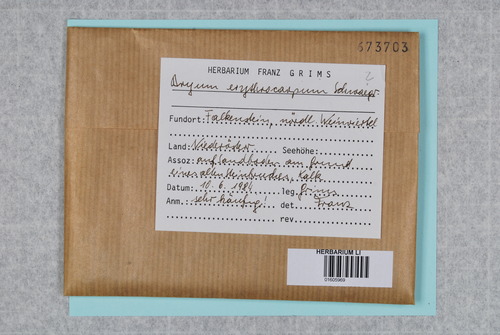 673703
HERBARIUM FRANZ GRIMS
2
Bryum erythrocarpum Schwaegr.
Fundort: Falkenstein, nördl. Weinviertel
Land: Niederöster. Seehöhe:
Assoz: auf Sandboden am Grund
eines alten Steinbruches, Kalk
Datum: 10.6.1981 leg. Grims
Anm.: sehr häufig! det. Franz
rev.
HERBARIUM LI
01605969